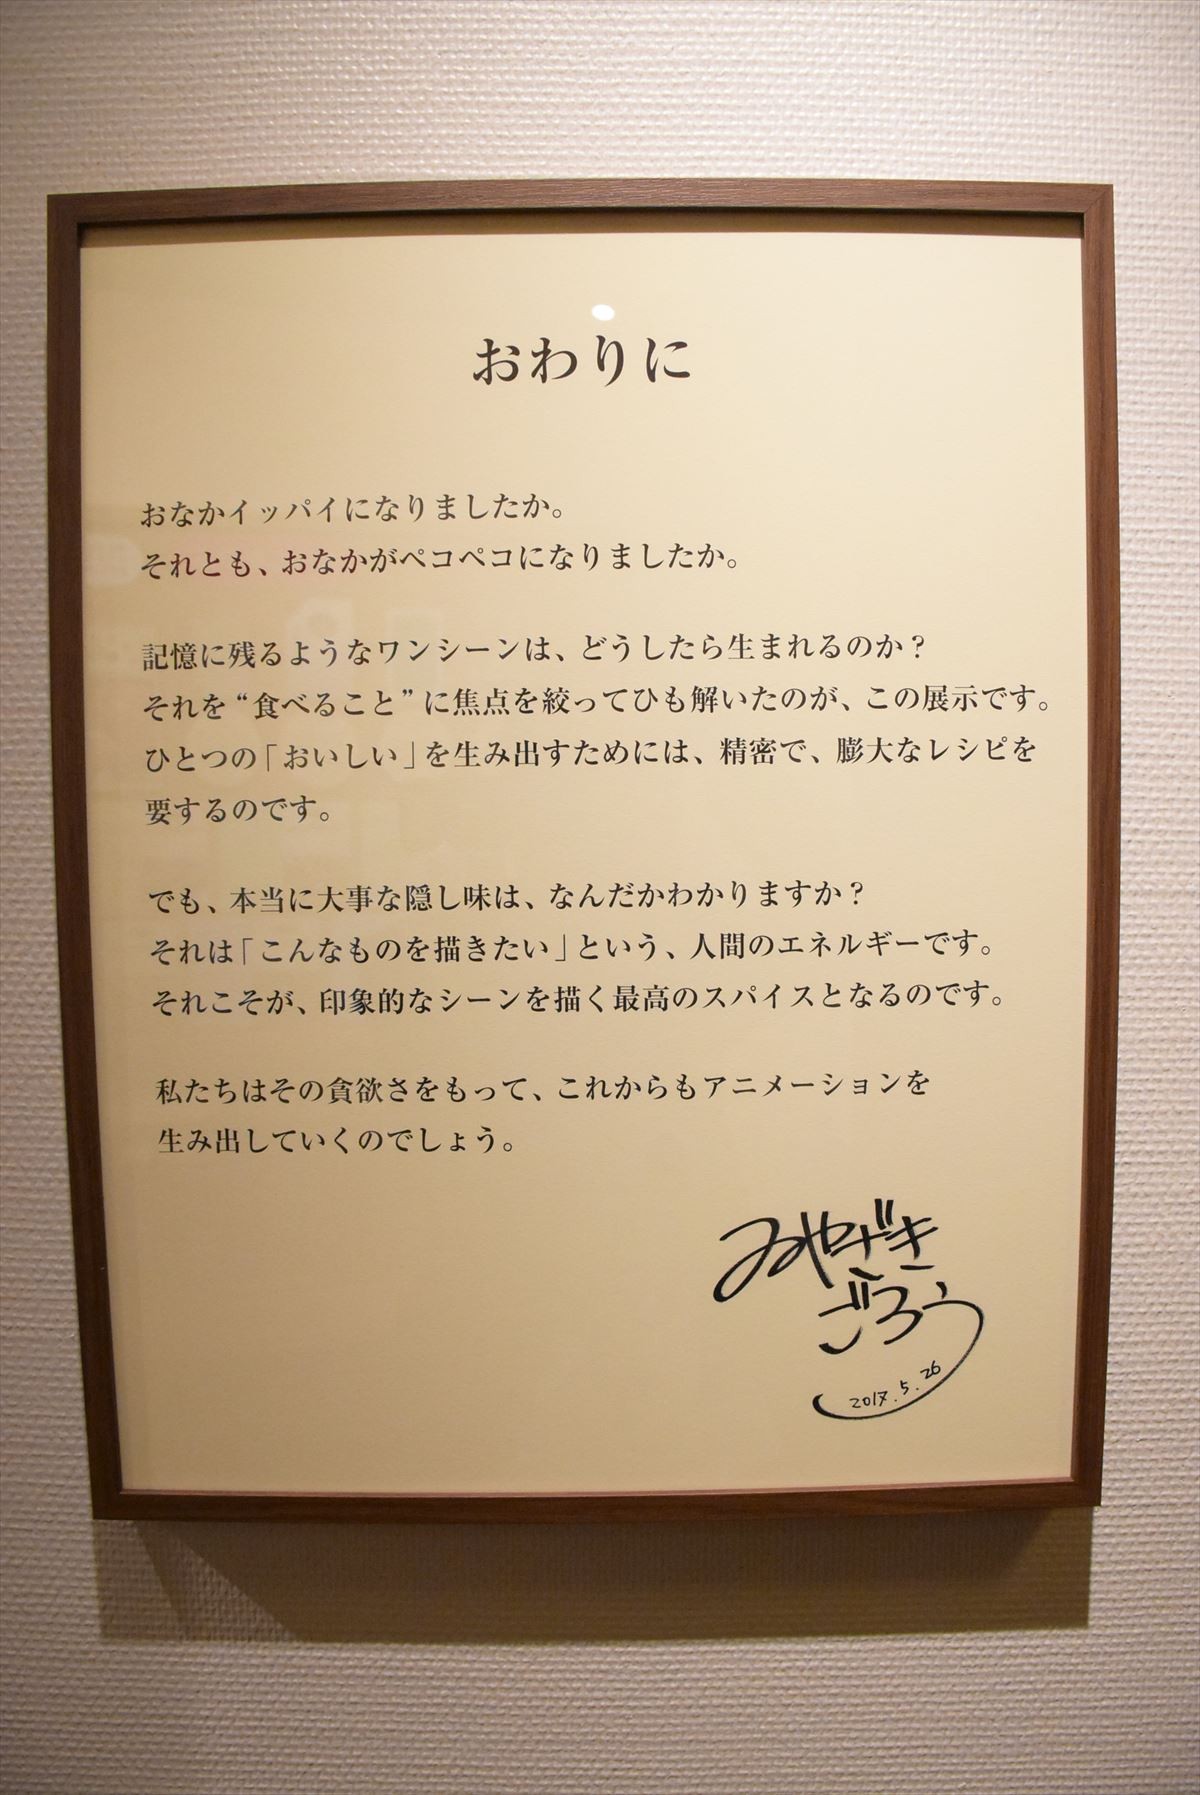 おわりに
おなかイッパイになりましたか。
それとも、おなかがペコペコになりましたか。
記憶に残るようなワンシーンは、どうしたら生まれるのか？
それを“食べること”に焦点を絞ってひも解いたのが、この展示です。
ひとつの「おいしい」を生み出すためには、精密で、膨大なレシピを
要するのです。
でも、本当に大事な隠し味は、なんだかわかりますか？
それは「こんなものを描きたい」という、人間のエネルギーです。
それこそが、印象的なシーンを描く最高のスパイスとなるのです。
私たちはその貪欲さをもって、これからもアニメーションを
生み出していくのでしょう。
みやざき
ごろう
2017.5.26